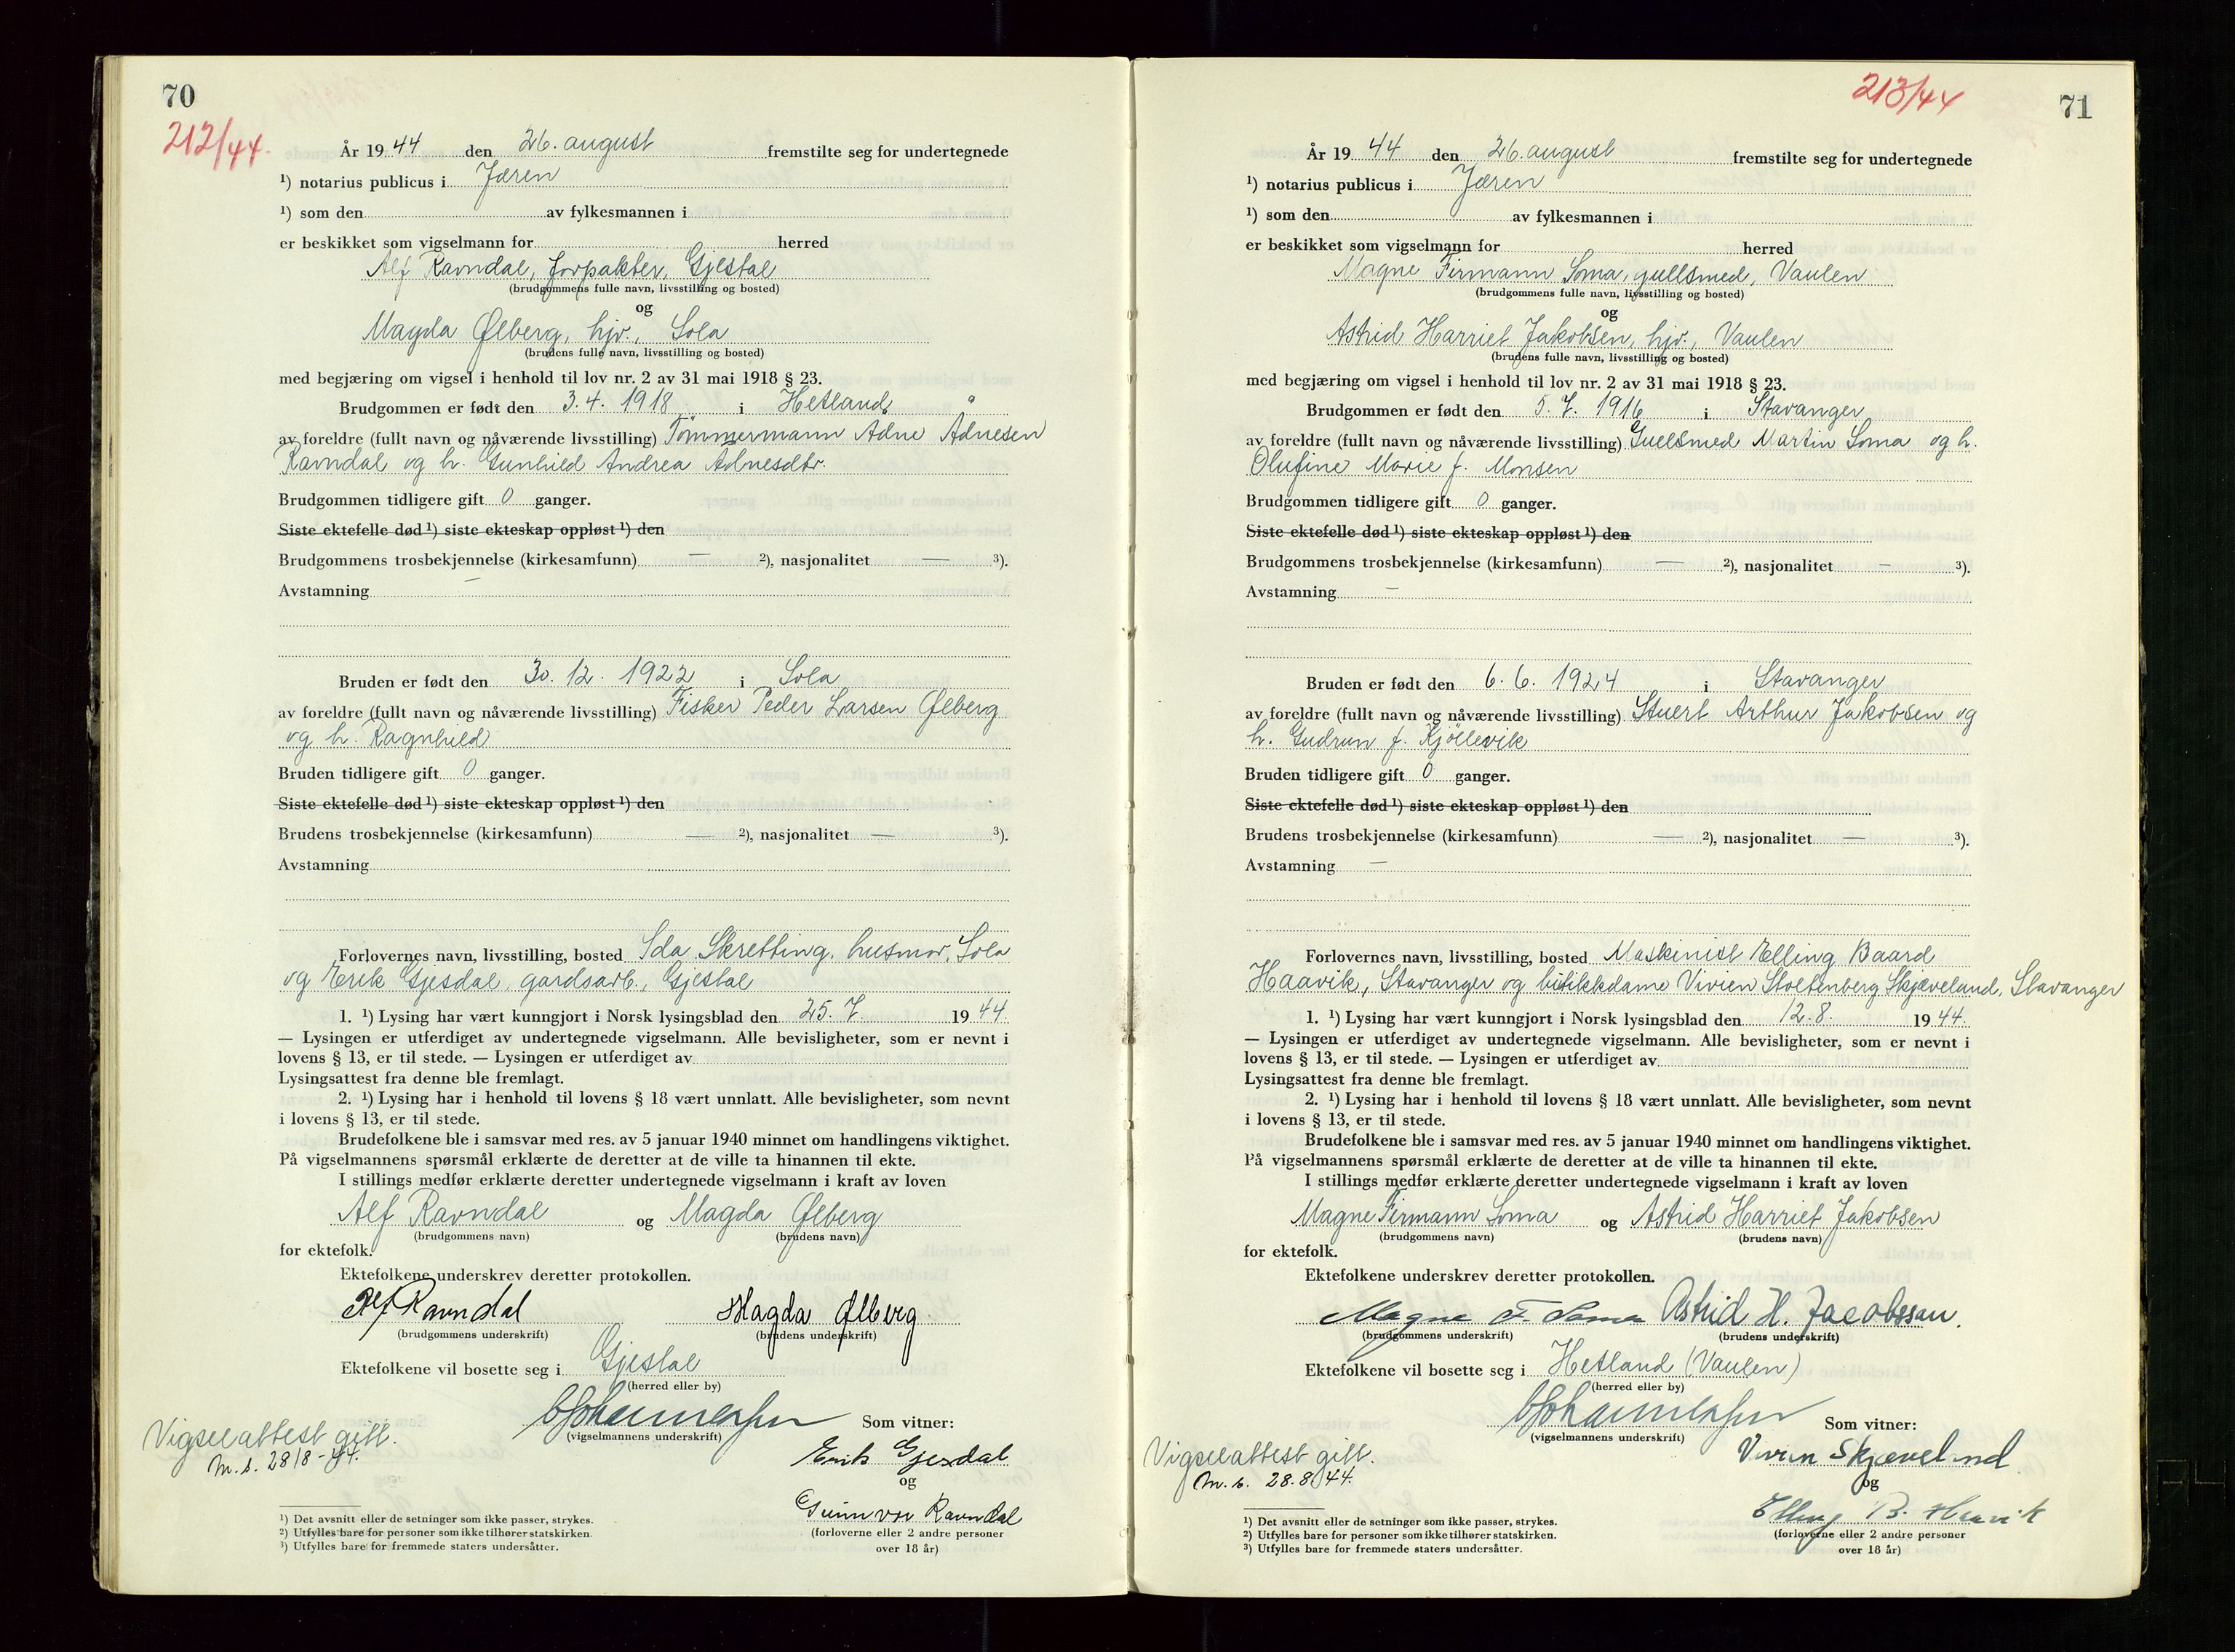 70
212/44.
År 1944 den 26. august fremstilte seg for undertegnede
¹) notarius publicus i Jæren
¹) som den av fylkesmannen i
er beskikket som vigselmann for herred
Alf Ravndal, forpakter, Gjestal
(brudgommens fulle navn, livsstilling og bosted)
og
Magda Ølberg, hjv., Sola
(brudens fulle navn, livsstilling og bosted)
med begjæring om vigsel i henhold til lov nr. 2 av 31 mai 1918 § 23.
Brudgommen er født den 3. 4. 1918 i Hetland
av foreldre (fullt navn og nåværende livsstilling) Tømmermann Adne Adnesen
Ravndal og h. Gunhild Andrea Adnesdtr.
Brudgommen tidligere gift 0 ganger.
Siste ektefelle død ¹) siste ekteskap oppløst ¹) den
Brudgommens trosbekjennelse (kirkesamfunn) — ²), nasjonalitet — ³).
Avstamning —
Bruden er født den 30. 12. 1922 i Sola
av foreldre (fullt navn og nåværende livsstilling) Fisker Peder Larsen Ølberg
og h. Ragnhild
Bruden tidligere gift 0 ganger.
Siste ektefelle død ¹) siste ekteskap oppløst ¹) den
Brudens trosbekjennelse (kirkesamfunn) — ²), nasjonalitet — ³).
Avstamning
Forlovernes navn, livsstilling, bosted Ida Skretting, husmor, Sola
og Erik Gjesdal, gardsarb., Gjestal
1. ¹) Lysing har vært kunngjort i Norsk lysingsblad den 25. 7. 1944.
— Lysingen er utferdiget av undertegnede vigselmann. Alle bevisligheter, som er nevnt i
lovens § 13, er til stede. — Lysingen er utferdiget av
Lysingsattest fra denne ble fremlagt.
2. ¹) Lysing har i henhold til lovens § 18 vært unnlatt. Alle bevisligheter, som nevnt
i lovens § 13, er til stede.
Brudefolkene ble i samsvar med res. av 5 januar 1940 minnet om handlingens viktighet.
På vigselmannens spørsmål erklærte de deretter at de ville ta hinannen til ekte.
I stillings medfør erklærte deretter undertegnede vigselmann i kraft av loven
Alf Ravndal og Magda Ølberg
(brudgommens navn) (brudens navn)
for ektefolk.
Ektefolkene underskrev deretter protokollen.
Alf Ravndal Magda Ølberg
(brudgommens underskrift) (brudens underskrift)
Ektefolkene vil bosette seg i Gjestal
(herred eller by)
Som vitner:
(vigselmannens underskrift)
Vigselattest gitt.
M.s. 28/8-44.
Erik Gjesdal
og
Gunnvor Ravndal
(forloverne eller 2 andre personer
over 18 år)
¹) Det avsnitt eller de setninger som ikke passer, strykes.
²) Utfylles bare for personer som ikke tilhører statskirken.
³) Utfylles bare for fremmede staters undersåtter.
213/44
71
År 1944 den 26. august fremstilte seg for undertegnede
¹) notarius publicus i Jæren
¹) som den av fylkesmannen i
er beskikket som vigselmann for herred
Magne Firmann Soma, gullsmed, Vaulen
(brudgommens fulle navn, livsstilling og bosted)
og
Astrid Harriet Jakobsen, hjv., Vaulen
(brudens fulle navn, livsstilling og bosted)
med begjæring om vigsel i henhold til lov nr. 2 av 31 mai 1918 § 23.
Brudgommen er født den 5. 7. 1916 i Stavanger
av foreldre (fullt navn og nåværende livsstilling) Gullsmed Martin Soma og h.
Olufine Marie f. Monsen
Brudgommen tidligere gift 0 ganger.
Siste ektefelle død ¹) siste ekteskap oppløst ¹) den
Brudgommens trosbekjennelse (kirkesamfunn) — ²), nasjonalitet — ³).
Avstamning —
Bruden er født den 6. 6. 1924 i Stavanger
av foreldre (fullt navn og nåværende livsstilling) Stuert Arthur Jakobsen og
h. Gudrun f. Kjöllevik
Bruden tidligere gift 0 ganger.
Siste ektefelle død ¹) siste ekteskap oppløst ¹) den
Brudens trosbekjennelse (kirkesamfunn) — ²), nasjonalitet — ³).
Avstamning —
Forlovernes navn, livsstilling, bosted Maskinist Elling Baard
Haavik, Stavanger og butikkdame Vivien Stoltenberg Skjæveland, Stavanger
1. ¹) Lysing har vært kunngjort i Norsk lysingsblad den 12. 8. 1944.
— Lysingen er utferdiget av undertegnede vigselmann. Alle bevisligheter, som er nevnt i
lovens § 13, er til stede. — Lysingen er utferdiget av
Lysingsattest fra denne ble fremlagt.
2. ¹) Lysing har i henhold til lovens § 18 vært unnlatt. Alle bevisligheter, som nevnt
i lovens § 13, er til stede.
Brudefolkene ble i samsvar med res. av 5 januar 1940 minnet om handlingens viktighet.
På vigselmannens spørsmål erklærte de deretter at de ville ta hinannen til ekte.
I stillings medfør erklærte deretter undertegnede vigselmann i kraft av loven
Magne Firmann Soma og Astrid Harriet Jakobsen
(brudgommens navn) (brudens navn)
for ektefolk.
Ektefolkene underskrev deretter protokollen.
Magne F. Soma Astrid H. Jacobssen.
(brudgommens underskrift) (brudens underskrift)
Ektefolkene vil bosette seg i Hetland (Vaulen)
(herred eller by)
Som vitner:
(vigselmannens underskrift)
Vigselattest gitt.
M.s. 28.8.44.
Vivien Skjæveland
og
Elling B. Haavik
(forloverne eller 2 andre personer
over 18 år)
¹) Det avsnitt eller de setninger som ikke passer, strykes.
²) Utfylles bare for personer som ikke tilhører statskirken.
³) Utfylles bare for fremmede staters undersåtter.